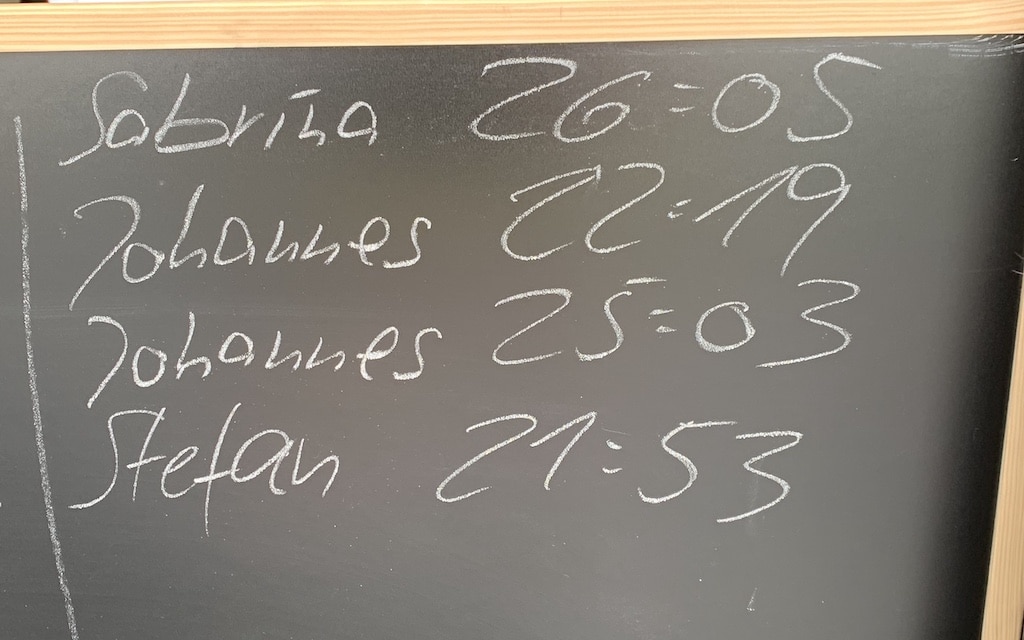 Sabrina 26:05
Johannes 22:19
Johannes 25:03
Stefan 21:53